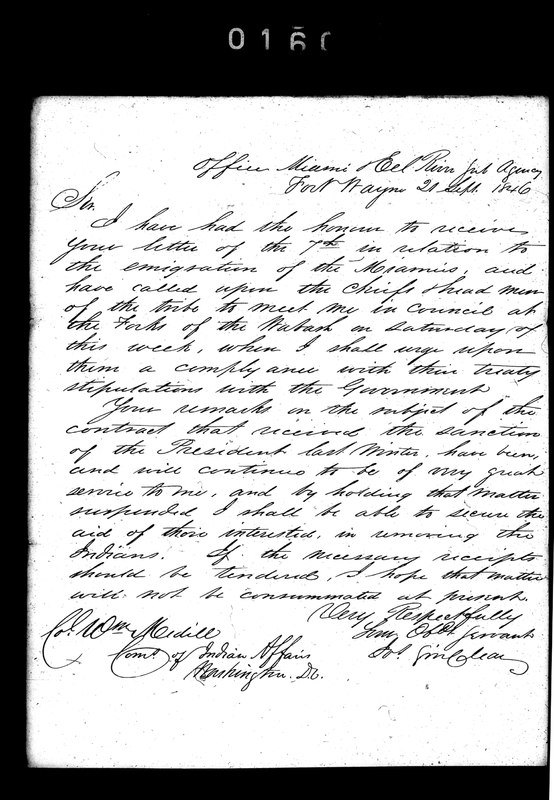 016
Office Miami & Eel River Sub Agency
Fort Wayne 21 Sept. 1846
Sir.
I have had the honour to receive
your letter of the 7th in relation to
the emigration of the Miamis, and
have called upon the Chiefs & head men
of the tribe to meet me in Council at
the Forks of the Wabash on Saturday of
this week, when I shall urge upon
them a complyance with their treaty
stipulations with the Government
Your remarks on the subject of the
contract that received the sanction
of the President last Winter, have been,
and will continue to be of very great
service to me, and by holding that matter
suspended I shall be able to secure the
aid of those interested, in removing the
Indians. If the necessary receipts
should be tendered, I hope that matter
will not be consummated at present.
Very Respectfully
Your Obdt Servant
Jos. Sinclear
Col. Wm Medill
Comr of Indian Affairs
Washington. D.C.